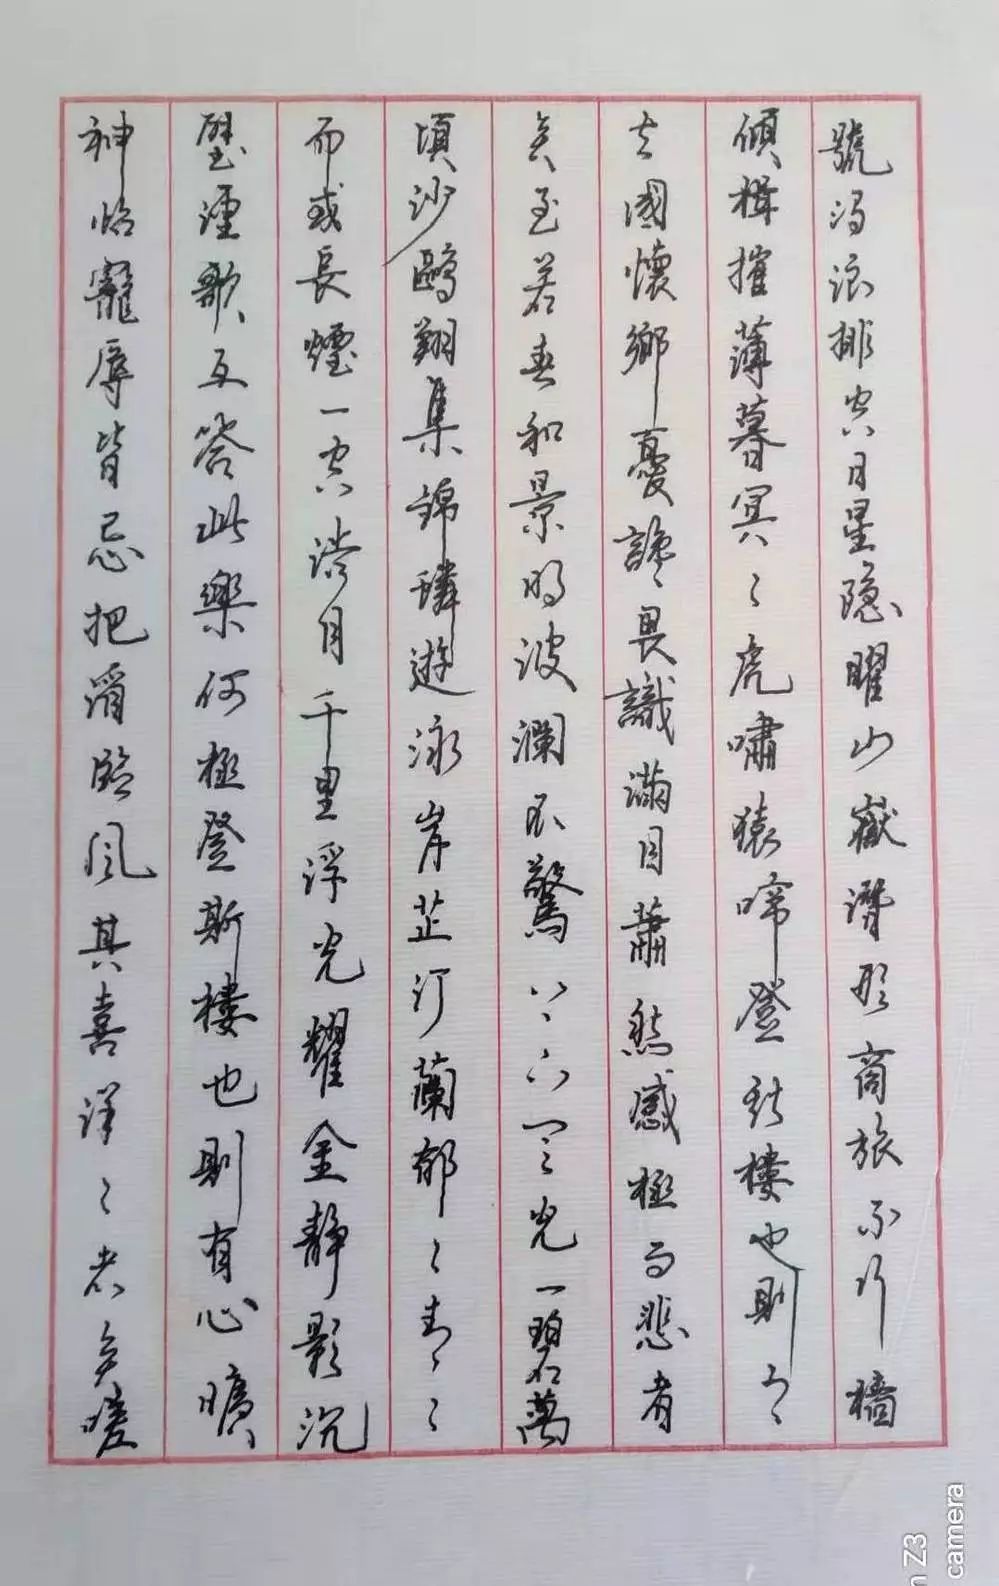 號濁浪排空日星隐曜山嶽潛形商旅不行檣
傾楫摧薄暮冥冥虎嘯猿啼登斯樓也則有
去國懷鄉憂讒畏譏滿目蕭然感極而悲者
矣至若春和景明波瀾不驚上下天光一碧萬
頃沙鷗翔集錦鱗遊泳岸芷汀蘭郁郁青青
而或長煙一空皓月千里浮光耀金静影沉
璧漁歌互答此樂何極登斯樓也則有心曠
神怡寵辱皆忘把酒臨風其喜洋洋者矣嗟
Z3
camera